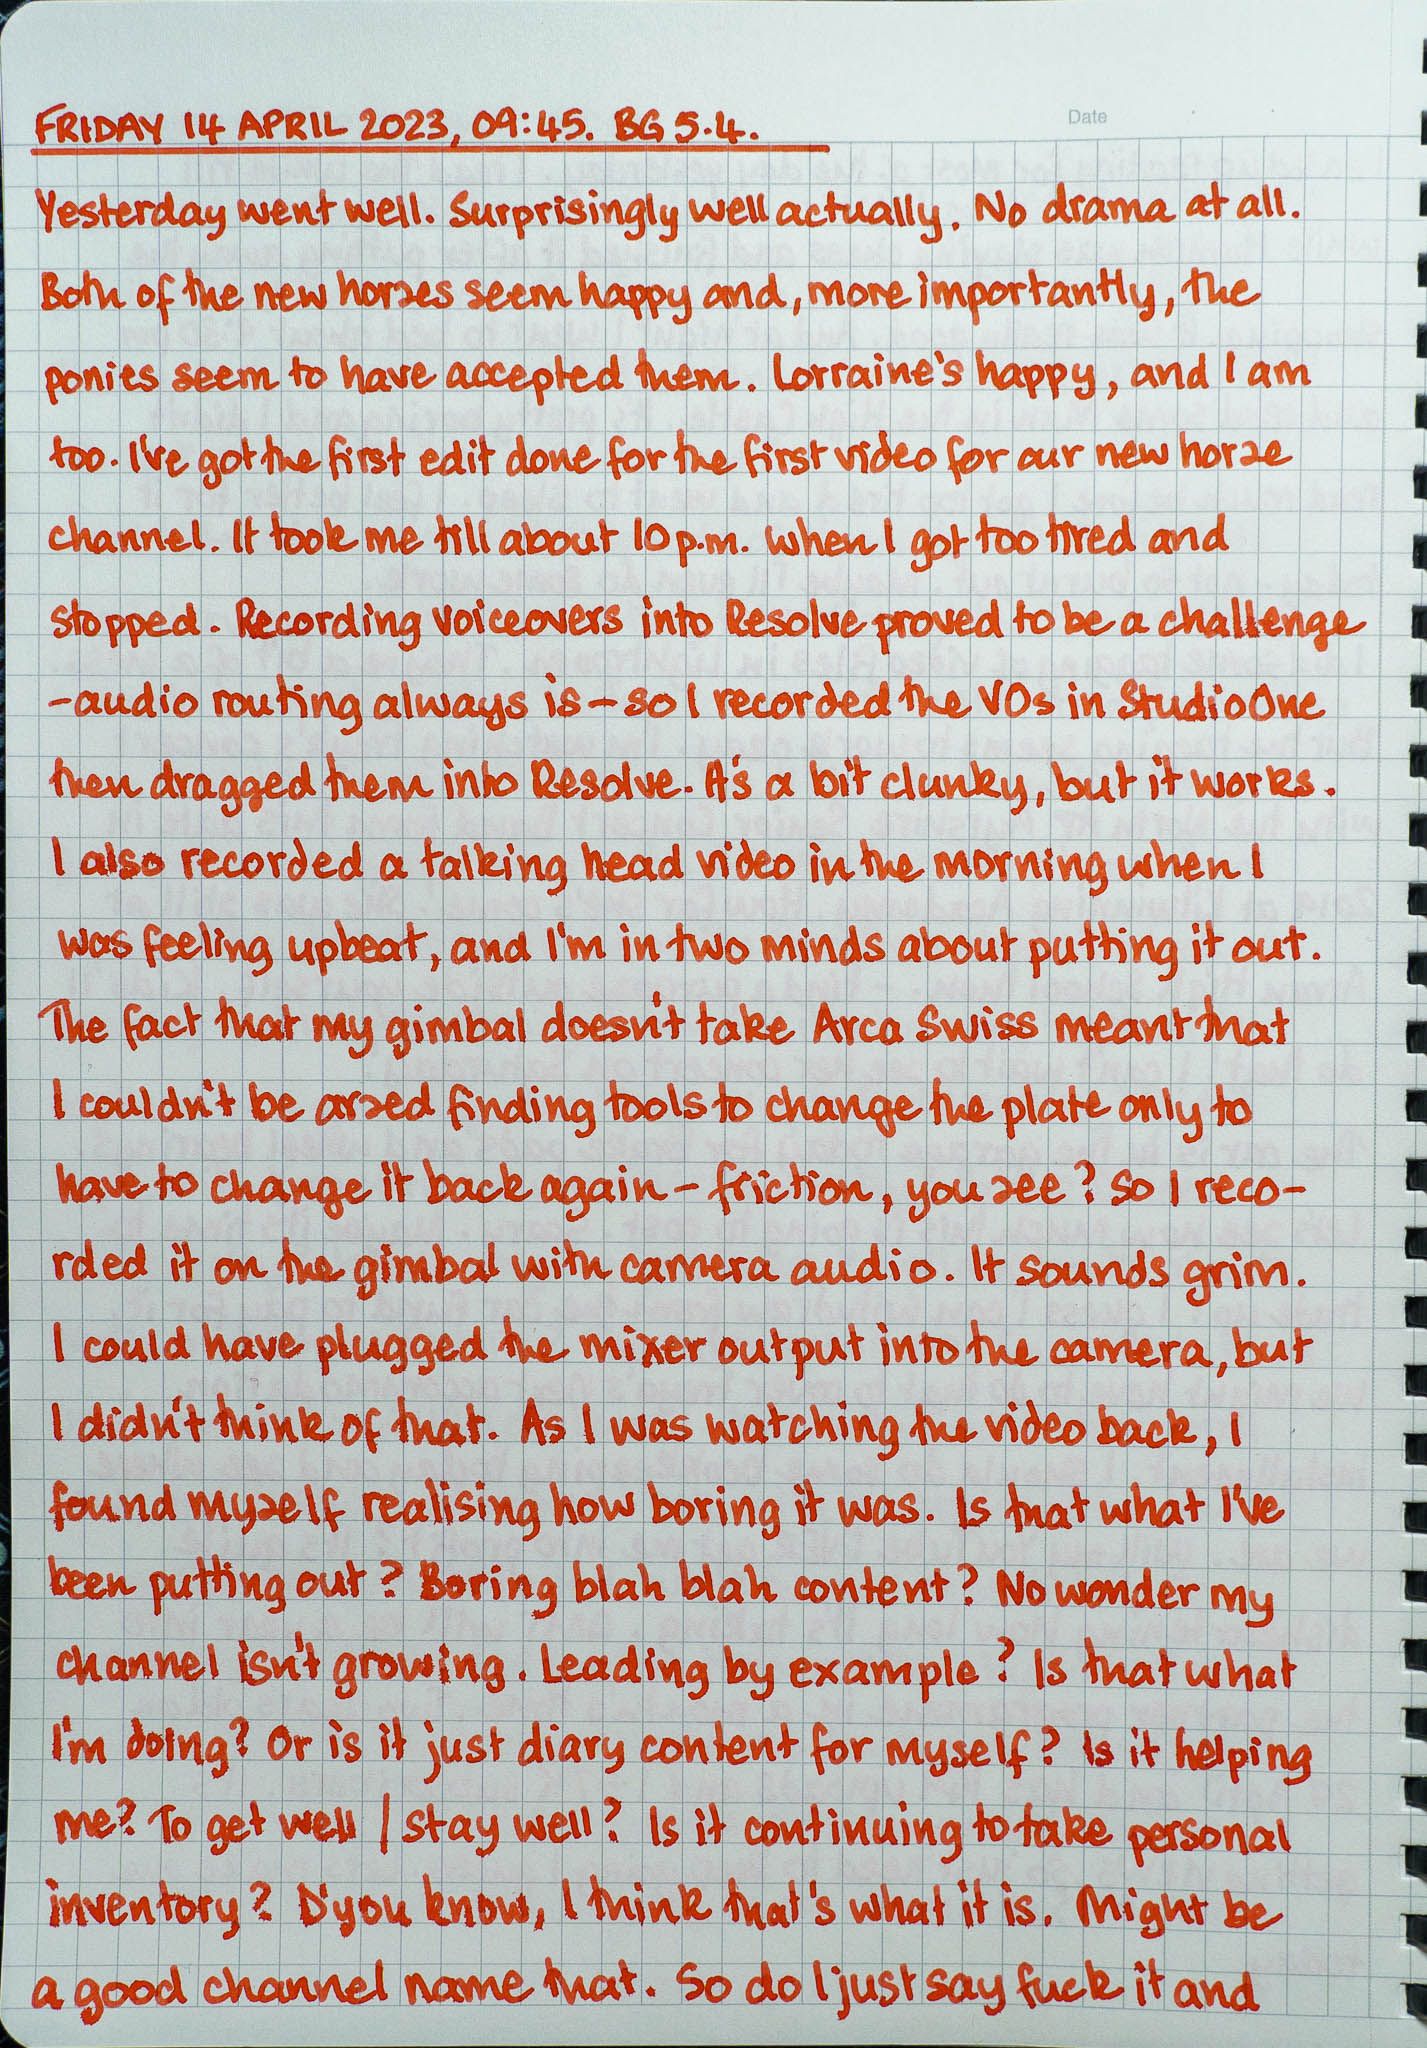 Date
FRIDAY 14 APRIL 2023, 09:45. BG 5.4.
Yesterday went well. Surprisingly well actually. No drama at all.
Both of the new horses seem happy and, more importantly, the
ponies seem to have accepted them. Lorraine's happy, and I am
too. I've got the first edit done for the first video for our new horse
channel. It took me till about 10p.m. when I got too tired and
stopped. Recording voiceovers into Resolve proved to be a challenge
-audio routing always is - so I recorded the VOs in StudioOne
then dragged them into Resolve. It's a bit clunky, but it works.
I also recorded a talking head video in the morning when I
was feeling upbeat, and I'm in two minds about putting it out.
The fact that my gimbal doesn't take Arca Swiss meant that
I couldn't be arsed finding tools to change the plate only to
have to change it back again - friction, you see? So I reco-
rded it on the gimbal with camera audio. It sounds grim.
I could have plugged the mixer output into the camera, but
I didn't think of that. As I was watching the video back, I
found myself realising how boring it was. Is that what I've
been putting out? Boring blah blah content? No wonder my
channel isn't growing. Leading by example? Is that what
I'm doing? Or is it just diary content for myself? Is it helping
me? To get well / stay well? Is it continuing to take personal
inventory? D'you know, I think that's what it is. Might be
a good channel name that. So do I just say fuck it and